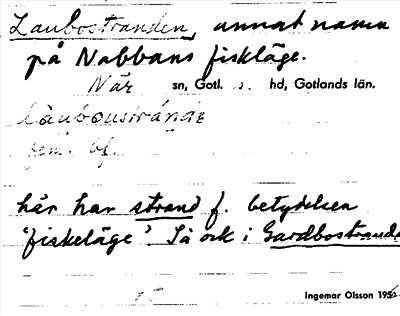 Laubostranden, annat namn
på Nabbans fiskläge.
När sn, Gotl. s. hd, Gotlands län.
fem. bf.
här har strand f. betydelsen
'fiskeläge'. Så ock i Gardbostranden
Ingemar Olsson 195